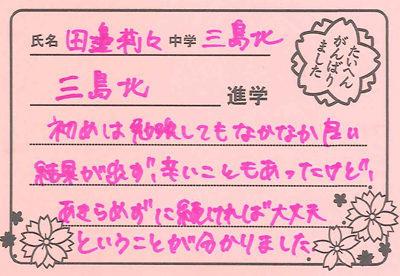 氏名 田邉莉々 中学 三島北
たいへん
がんばり
ました
三島北 進学
初めは勉強してもなかなか良い
結果が出ず、辛いこともあったけど、
あきらめずに続ければ大丈夫
ということが分かりました